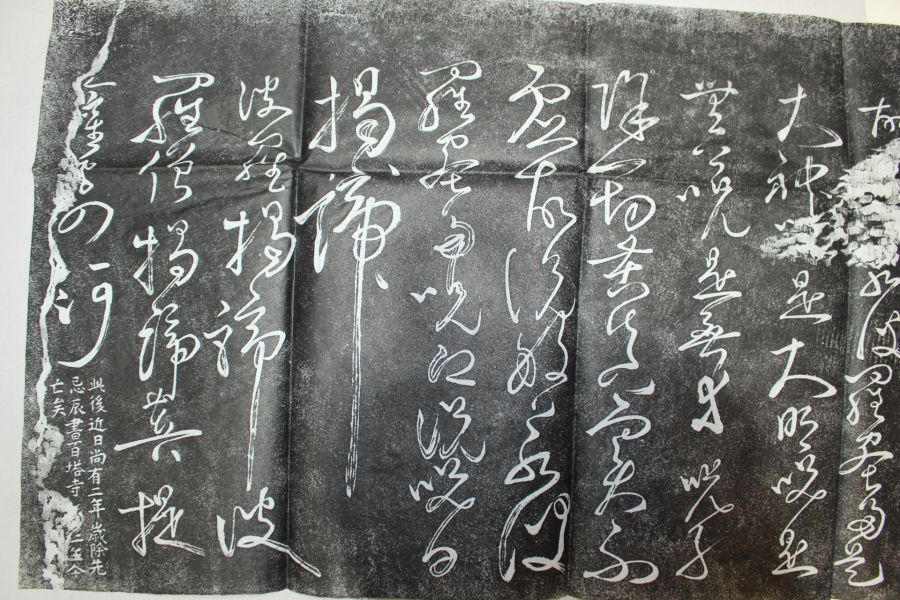 故若波羅蜜多是
大神是大明呪是
無上呪是無等呪能
除一切苦真實不
虛故說般若波
羅蜜多呪即說呪曰
揭諦
波羅揭諦波
羅僧揭諦菩提
薩婆訶
此後近日尚有二年歲除先
忌辰書百塔寺仁至今
亡矣